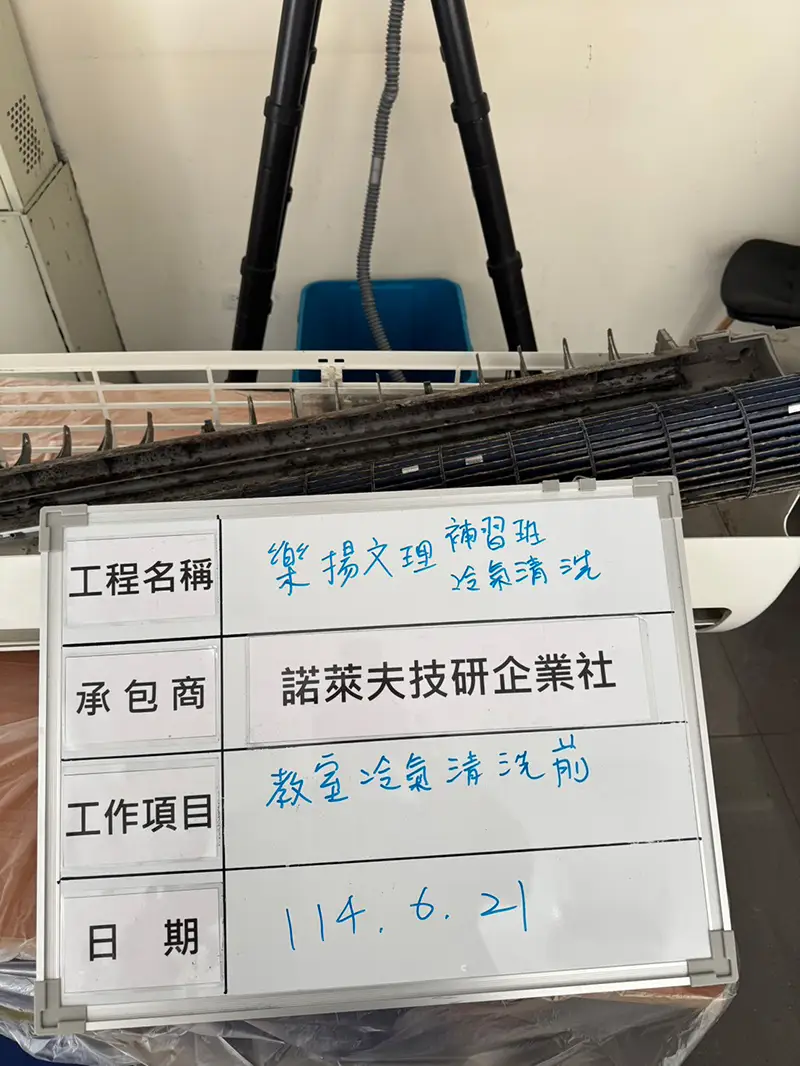 工程名稱
樂揚文理補習班
冷氣清洗
承包商
諾萊夫技研企業社
工作項目
教室冷氣清洗前
日期
114.6.21